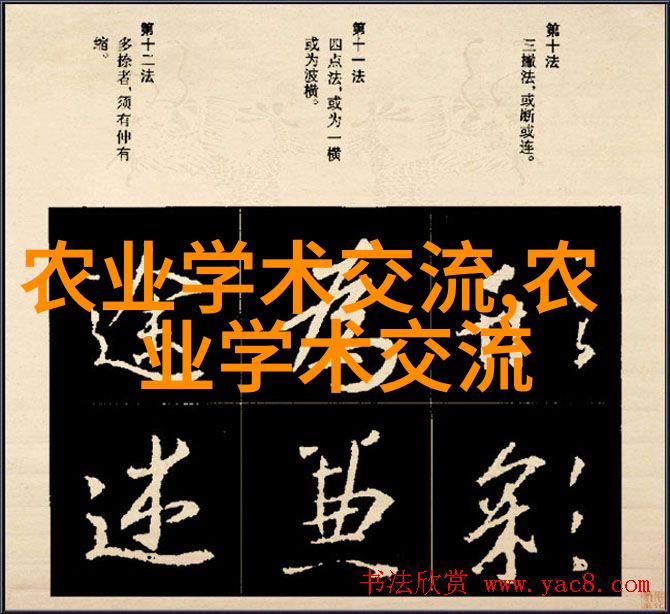 第十法
三撇法，或断或连。
第十一法
四点法，或为一横
或为波横。
第十二法
多捺者，须有伸有
缩。
农业学术交流,农
业学术交流
途
为
形
述
典
彩
书法欣赏 www.yac8.com